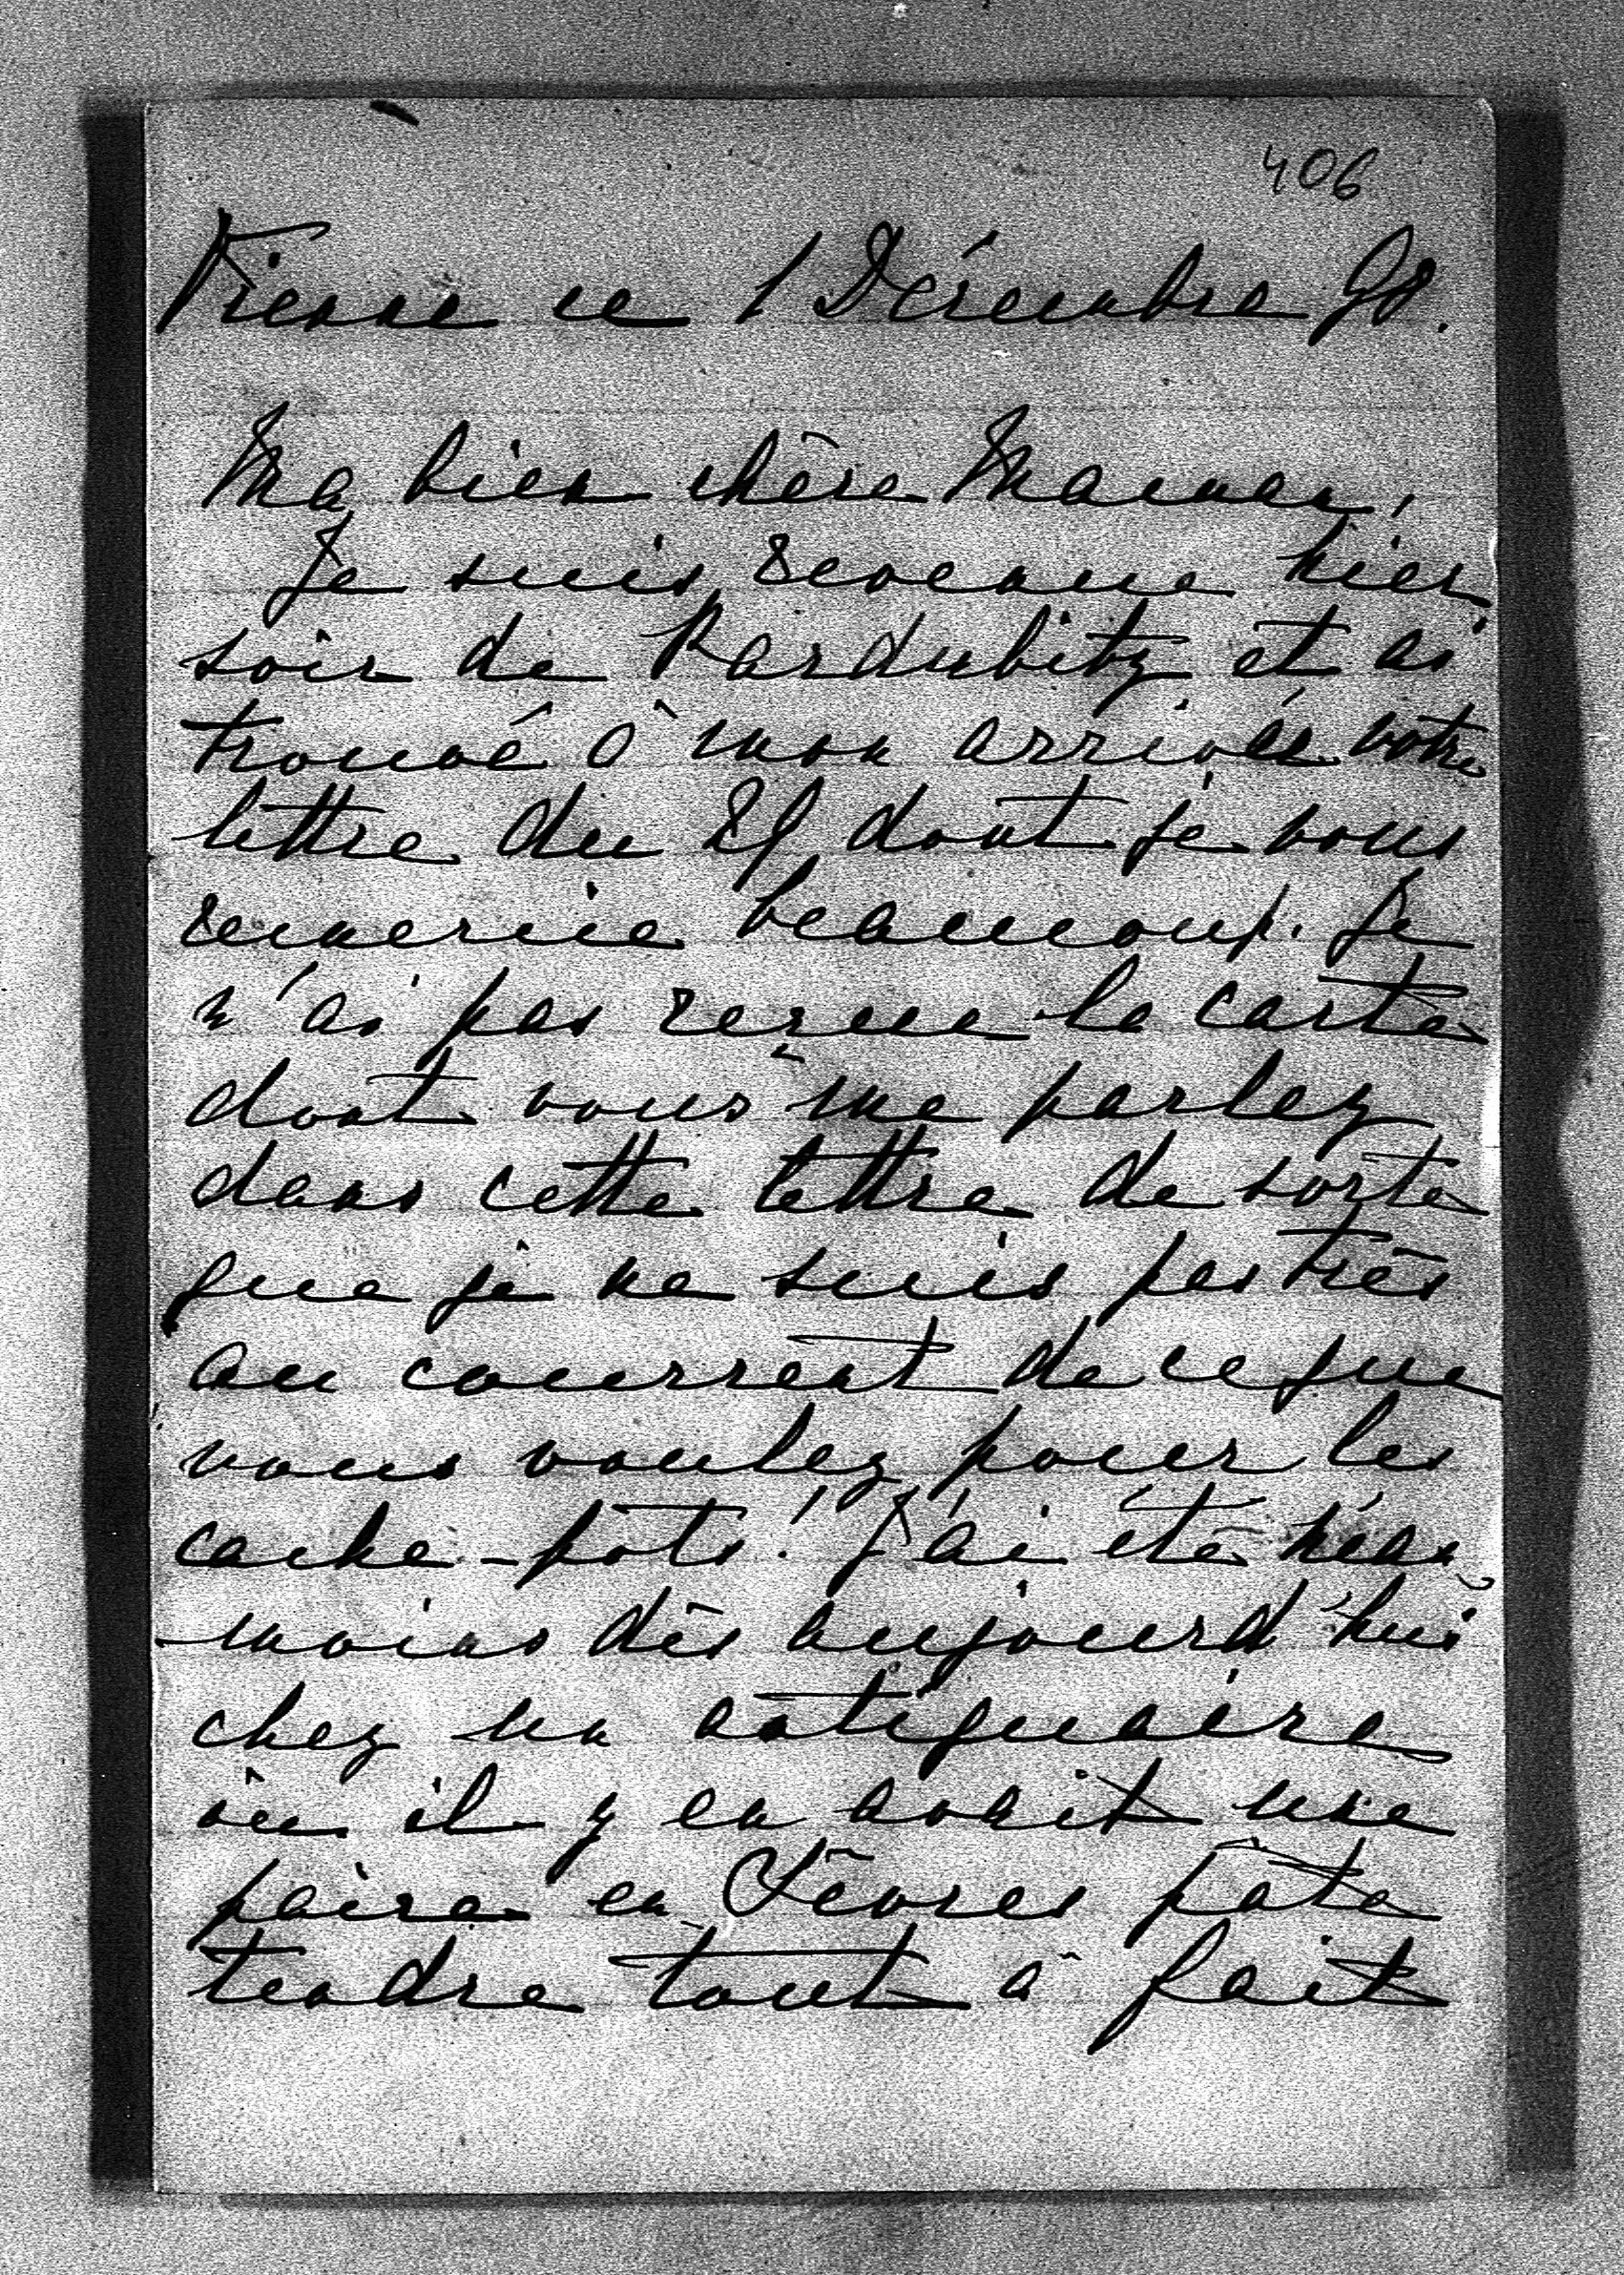 406
Vienne ce 1 Décembre 98.
Ma bien chère Maman,
Je suis revenue hier
soir de Pardubitz et ai
trouvé à mon arrivée votre
lettre du 29 dont je vous
remercie beaucoup. Je
n'ai pas reçue la carte
dont vous me parlez
dans cette lettre de sorte
que je ne suis pas très
au courrent de ce que
vous voulez pour les
cache-pots! J'ai été néan
-moins dès aujourd'hui
chez un antiquaire
où il y en avait une
paire en Sèvres pâte
tendre tout à fait